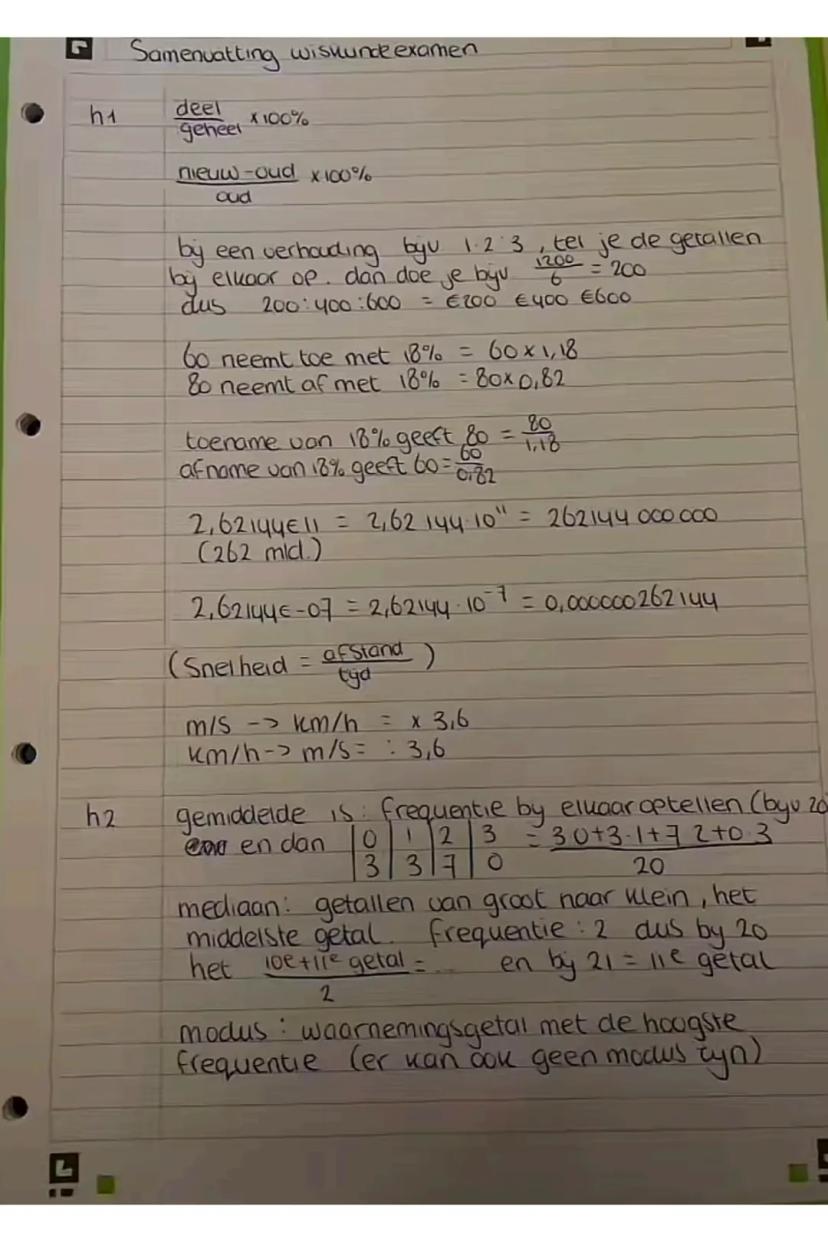 Samenvatting wiskunde examen
h1 deel/geheel x 100%
nieuw-oud/oud x 100%
bij een verhouding bijv 1:2:3, tel je de getallen
bij elkaar op. dan doe je bijv 1200/6 = 200
dus 200:400:600 = €200 €400 €600
60 neemt toe met 18% = 60 x 1,18
80 neemt af met 18% = 80 x 0,82
toename van 18% geeft 80 = 80/1,18
afname van 18% geeft 60 = 60/0,82
2,62144E11 = 2,62144·10¹¹ = 262144 000 000
(262 mld.)
2,62144E-07 = 2,62144·10⁻⁷ = 0,000000262144
(Snelheid = afstand/tijd)
m/s -> km/h = x 3,6
km/h -> m/s = : 3,6
h2 gemiddelde is: frequentie bij elkaar optellen (bijv 20
en dan |0|1|2|3 = 3·0+3·1+7·2+0·3
|3|3|7|0 20
mediaan: getallen van groot naar klein, het
middelste getal. frequentie:2 dus bij 20
het 10e+11e getal/2 = ... en bij 21 = 11e getal
modus: waarnemingsgetal met de hoogste
frequentie (er kan ook geen modus zijn)